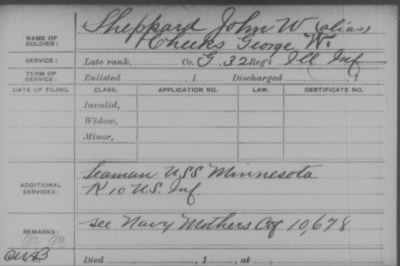 Sheppard John W (alias)
NAME OF SOLDIER: Cheeks George W.
SERVICE: Late rank, Co. G, 32 Reg't Ill Inf
TERM OF SERVICE: Enlisted , 1 Discharged
DATE OF FILING. CLASS. APPLICATION NO. LAW. CERTIFICATE NO.
Invalid,
Widow,
Minor,
Seaman USS Minnesota
ADDITIONAL SERVICES: K 10 U.S. Inf.
REMARKS: see Navy Mothers Ctf 10,678
Died , 1 , at